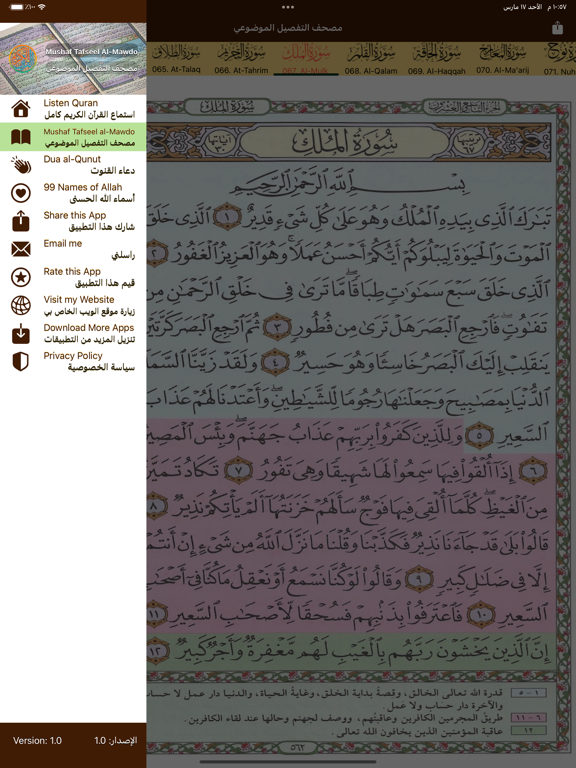 ١٠:٥٧ م الأحد ١٧ مارس
٪١٠٠
مصحف التفصيل الموضوعي
Mushaf Tafseel Al-Mawdo
مصحف التفصيل الموضوعي
Listen Quran
استماع القرآن الكريم كامل
Mushaf Tafseel al-Mawdo
مصحف التفصيل الموضوعي
Dua al-Qunut
دعاء القنوت
99 Names of Allah
أسماء الله الحسنى
Share this App
شارك هذا التطبيق
Email me
راسلني
Rate this App
قيم هذا التطبيق
Visit my Website
زيارة موقع الويب الخاص بي
Download More Apps
تنزيل المزيد من التطبيقات
Privacy Policy
سياسة الخصوصية
Version: 1.0
الإصدار: 1.0
سورة الطلاق
065. At-Talaq
سورة التحريم
066. At-Tahrim
سورة الملك
067. Al-Mulk
سورة القلم
068. Al-Qalam
سورة الحاقة
069. Al-Haqqah
سورة المعارج
070. Al-Ma'arij
071. Nuh
سورة الملك
الجزء التاسع والعشرون
ترتيبها ٦٧
سُورَةُ المُلْكِ
آياتها ٣٠
بِسْمِ اللَّهِ الرَّحْمَٰنِ الرَّحِيمِ
تَبَارَكَ الَّذِي بِيَدِهِ الْمُلْكُ وَهُوَ عَلَىٰ كُلِّ شَيْءٍ قَدِيرٌ ١ الَّذِي خَلَقَ
الْمَوْتَ وَالْحَيَوٰةَ لِيَبْلُوَكُمْ أَيُّكُمْ أَحْسَنُ عَمَلًا ۚ وَهُوَ الْعَزِيزُ الْغَفُورُ ٢
الَّذِي خَلَقَ سَبْعَ سَمَٰوَٰتٍ طِبَاقًا ۖ مَّا تَرَىٰ فِي خَلْقِ الرَّحْمَٰنِ مِن
تَفَٰوُتٍ ۖ فَارْجِعِ الْبَصَرَ هَلْ تَرَىٰ مِن فُطُورٍ ٣ ثُمَّ ارْجِعِ الْبَصَرَ كَرَّتَيْنِ
يَنقَلِبْ إِلَيْكَ الْبَصَرُ خَاسِئًا وَهُوَ حَسِيرٌ ٤ وَلَقَدْ زَيَّنَّا السَّمَا
الدُّنْيَا بِمَصَٰبِيحَ وَجَعَلْنَٰهَا رُجُومًا لِّلشَّيَٰطِينِ ۖ وَأَعْتَدْنَا لَهُمْ عَذَابَ
السَّعِيرِ ٥ وَلِلَّذِينَ كَفَرُوا بِرَبِّهِمْ عَذَابُ جَهَنَّمَ ۖ وَبِئْسَ الْمَصِيرُ
٦ إِذَا أُلْقُوا فِيهَا سَمِعُوا لَهَا شَهِيقًا وَهِيَ تَفُورُ ٧ تَكَادُ تَمَيَّزُ
مِنَ الْغَيْظِ ۖ كُلَّمَا أُلْقِيَ فِيهَا فَوْجٌ سَأَلَهُمْ خَزَنَتُهَا أَلَمْ يَأْتِكُمْ نَذِيرٌ ٨
قَالُوا بَلَىٰ قَدْ جَاءَنَا نَذِيرٌ فَكَذَّبْنَا وَقُلْنَا مَا نَزَّلَ اللَّهُ مِن شَيْءٍ إِنْ أَنتُمْ
إِلَّا فِي ضَلَٰلٍ كَبِيرٍ ٩ وَقَالُوا لَوْ كُنَّا نَسْمَعُ أَوْ نَعْقِلُ مَا كُنَّا فِي أَصْحَٰبِ
السَّعِيرِ ١٠ فَاعْتَرَفُوا بِذَنبِهِمْ فَسُحْقًا لِّأَصْحَٰبِ السَّعِيرِ ١١
إِنَّ الَّذِينَ يَخْشَوْنَ رَبَّهُم بِالْغَيْبِ لَهُم مَّغْفِرَةٌ وَأَجْرٌ كَبِيرٌ ١٢
١ - ٥ قدرة الله تعالى الخالق، وقصة بداية الخلق، وغاية الحياة، والدنيا دار عمل لا حساب
والآخرة دار حساب ولا عمل.
٦ - ١١ طريق المجرمين الكافرين وعاقبتهم، ووصف لجهنم وحالها عند لقاء الكافرين.
١٢ عاقبة المؤمنين الذين يخافون الله تعالى.
٥٦٢